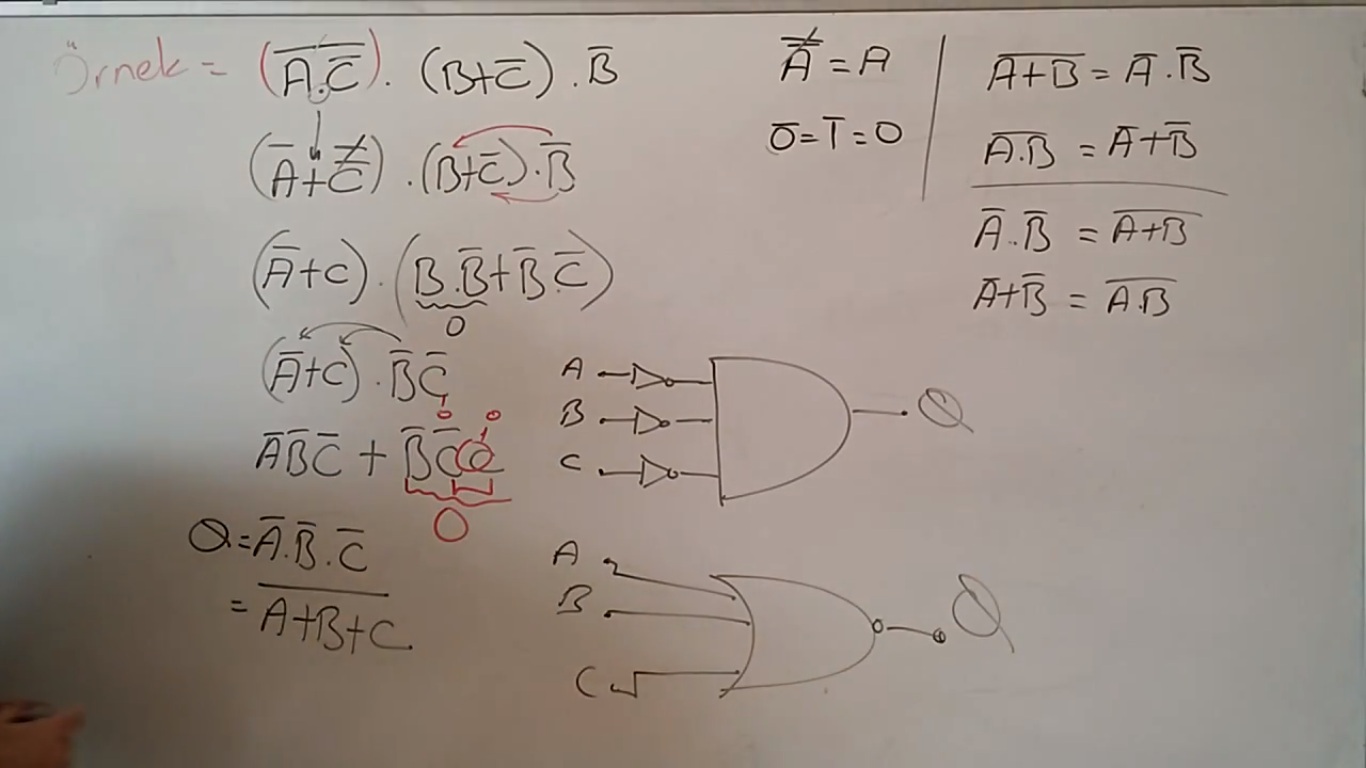 Örnek = (A̅.̅C̿) . (B+C̅) . B̅
(A̅+C̿) . (B+C̅).B̅
(A̅+C) . (B.B̅+B̅.C̅)
0
(A̅+C) . B̅C̅
A̅B̅C̅ + B̅C̅C
0
Q=A̅.B̅.C̅
= A̅+̅B̅+̅C̅
A̿ = A
0̅=1̅=0
A̅+̅B̅ = A̅.B̅
A̅.̅B̅ = A̅+B̅
A̅.B̅ = A̅+̅B̅
A̅+B̅ = A̅.̅B̅
A
B
C
Q
A
B
C
Q